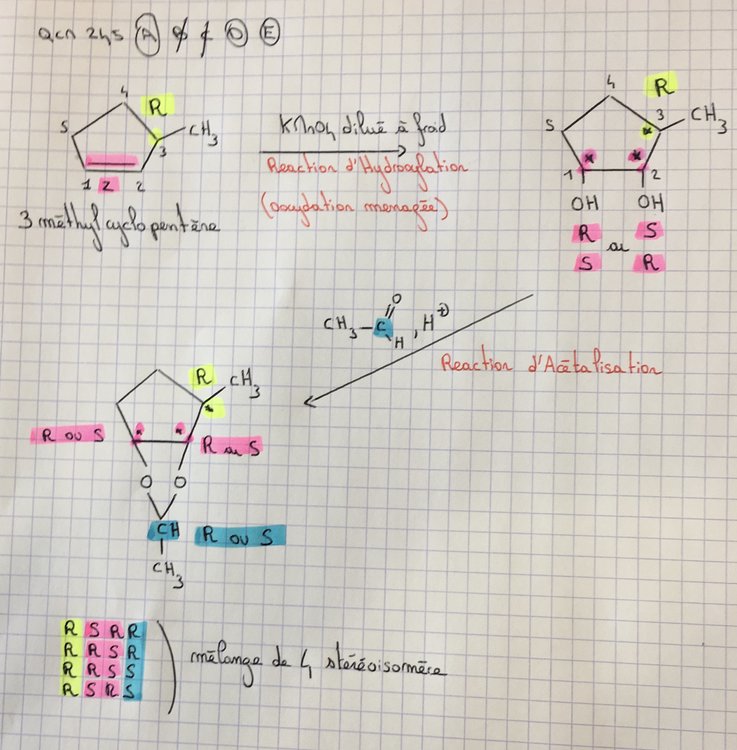 QCM 245 A B C D E
4
R
5
CH3
3
1 Z 2
3 méthylcyclopentène
KMnO4 dilué à froid
Reaction d'Hydroxylation
(oxydation menagée)
4
R
3
CH3
5
1
2
OH OH
R ou S
S R
O
CH3-C, H⊕
H
Reaction d'Acétalisation
R CH3
R ou S
R ou S
O O
CH R ou S
CH3
R S R R
R R S R
R R S S
R S R S
mélange de 4 stéréoisomère